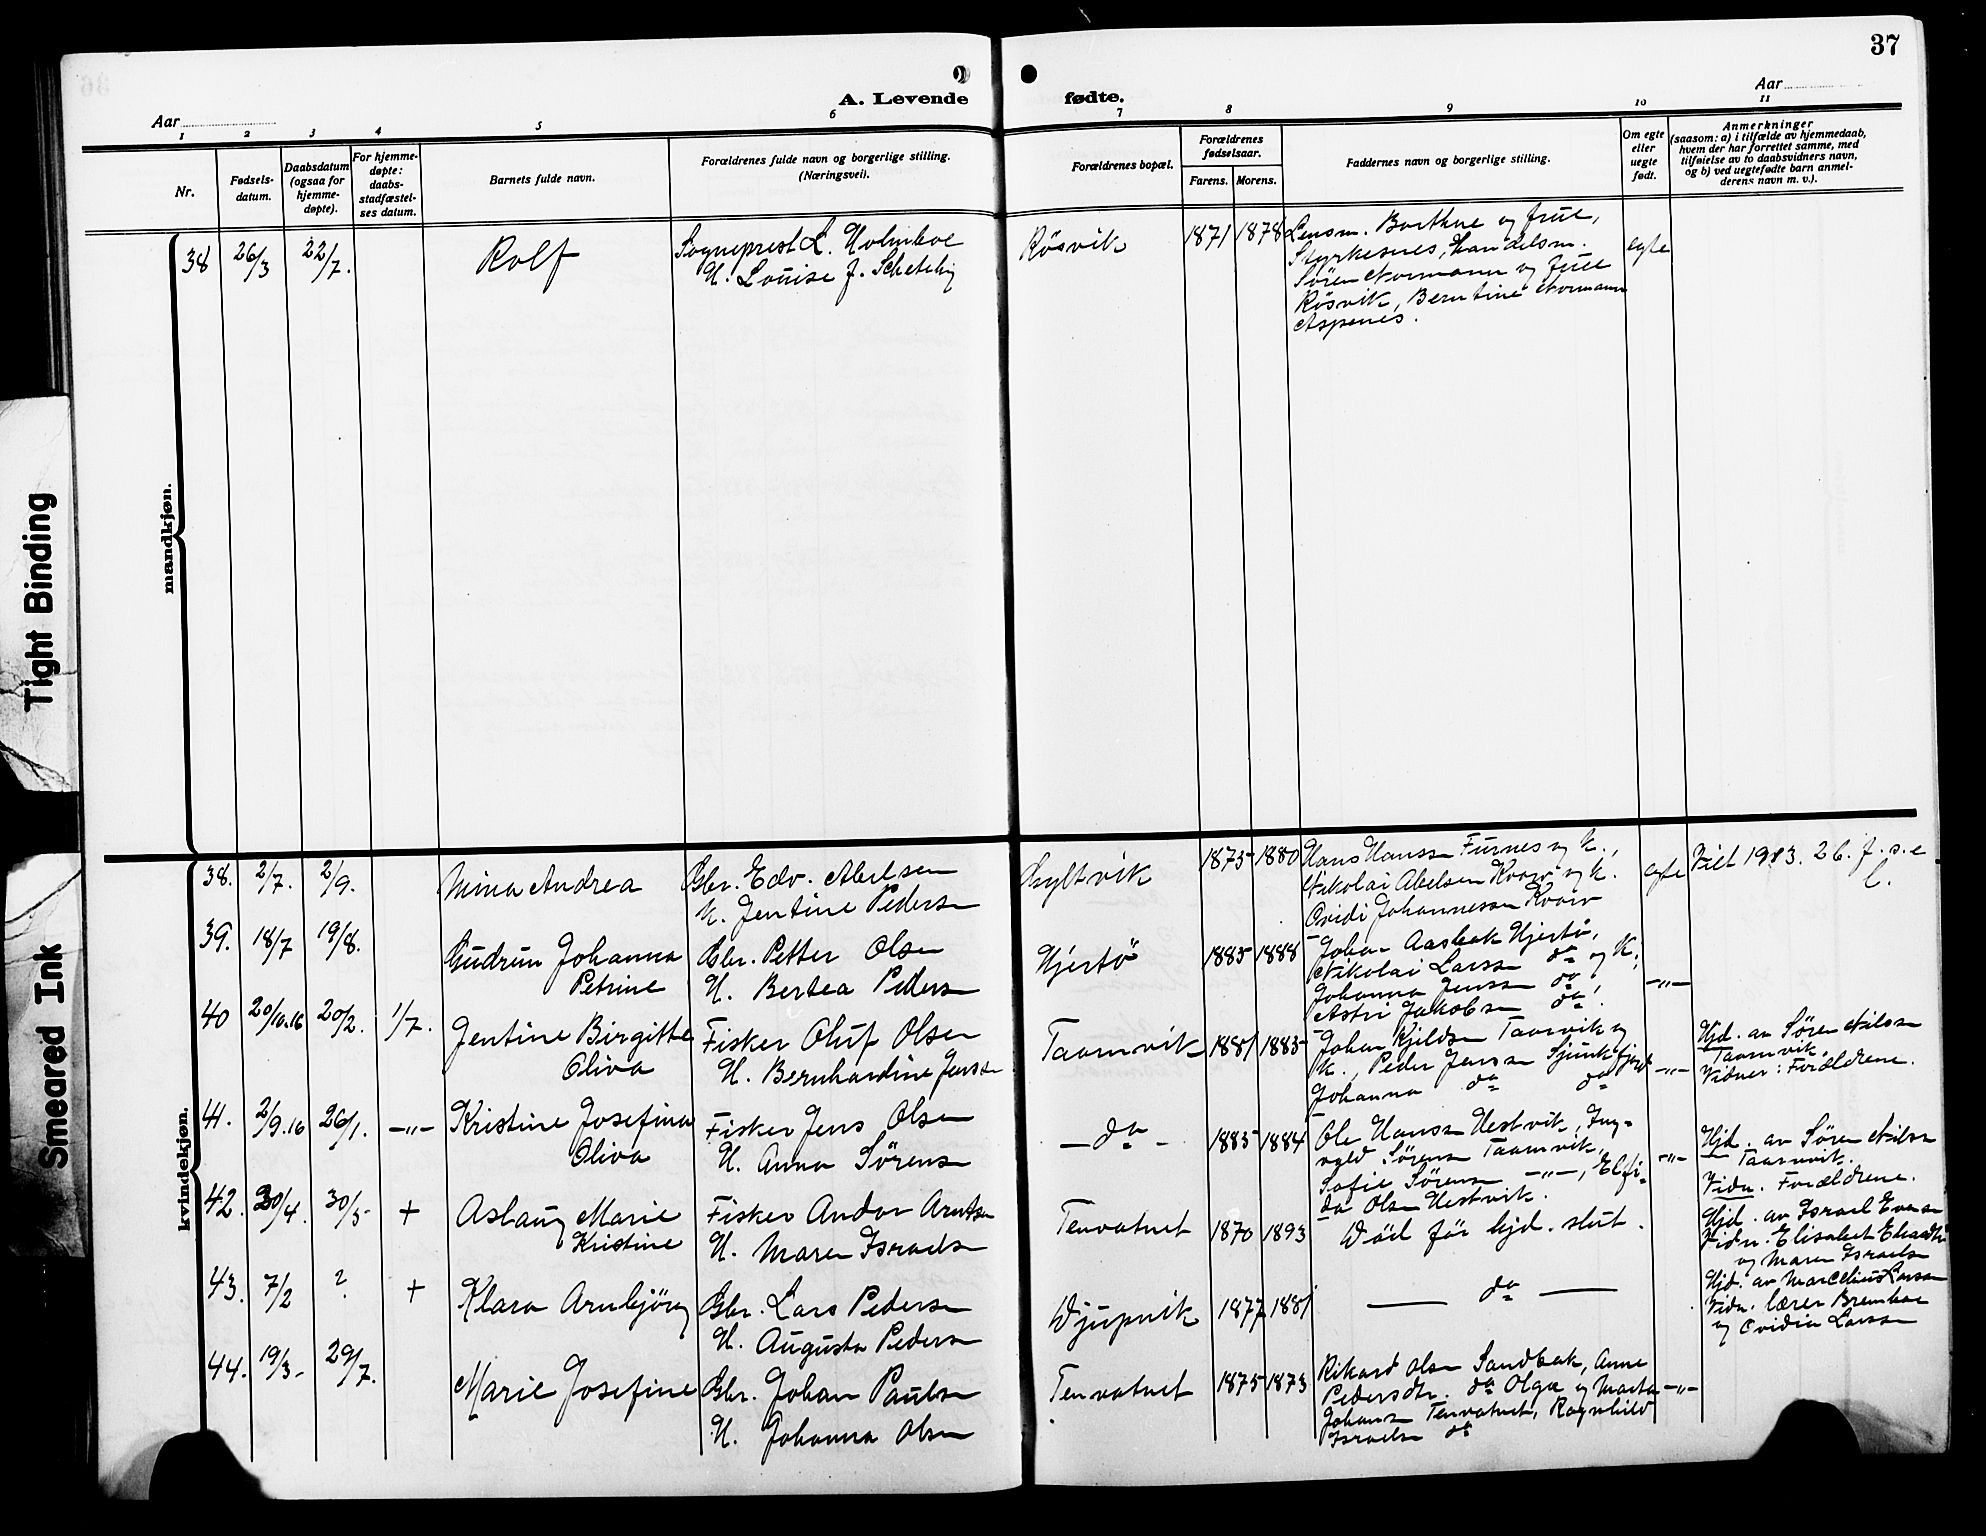 37
A. Levende fødte.
Aar
Aar
1 2 3 4 5 6 7 8 9 10 11
Nr.
Fødsels-
datum.
Daabsdatum
(ogsaa for
hjemme-
døpte).
For hjemme-
døpte:
daabs-
stadfæstel-
ses datum.
Barnets fulde navn.
Forældrenes fulde navn og borgerlige stilling.
(Næringsvei).
Forældrenes bopæl.
Forældrenes
fødselsaar.
Farens. Morens.
Faddernes navn og borgerlige stilling.
Om egte
eller
uegte
født.
Anmerkninger
(saasom: a) i tilfælde av hjemmedaab,
hvem der har forrettet samme, med
tilføielse av to daabsvidners navn,
og b) ved uegtefødte barn anmel-
derens navn m. v.).
mandkjøn.
38 26/3 22/7. Rolf
Sogneprest L. Holmboe
H. Louise f. Schetelig
Røsvik 1871 1878
Lensm. Borthne og frue,
Styrkesnes, Handelsm.
Søren Normann og frue
Røsvik, Berntine Normann
Aspenes.
egte
kvindekjøn.
38. 2/7. 2/9. Mina Andrea
Gbr. Edv. Abelsen
H. Jentine Peders
Gyltvik 1875 1880
Hans Hanssn Furnes og K.,
Nikolai Abelsen Kvarv og K.
Ovidi Johannessn Kvarv
egte
Viet 1913. 26. f. s. e
39. 18/7 19/8. Gudrun Johanna
Petrine
Gbr. Petter Olsn
H. Bertea Peders
Hjertö 1885 1888
Johan Aasbak Hjertö,
Nikolai Larssn do og K.,
Johanna Jenssn do,
Astri Jakobsn do.
-"-
40 20/10.16 20/2. 1/7. Jentine Birgitte
Oliva
Fisker Oluf Olsen
H. Bernhardine Jenssn
Taarnvik 1881 1885
Johan Kjeldsn Taarnvik og
K., Peder Jenssn Sjunkfjord
Johanna do do
-"-
Hjd. av Søren Nilssn
Taarnvik.
Vidner: Forældrene.
41. 2/9.16 26/1. -"- Kristine Josefina
Oliva
Fisker Jens Olsen
H. Anna Sørensn
- do - 1885 1884
Ole Hanssn Hestvik, Ing-
vald Sørensn Taarnvik,
Sofie Sørensn -"-, Elfi-
da Olsn Hestvik.
-"-
Hjd. av Søren Nilsn
Taarnvik.
Vidn. Forældrene.
42. 30/4. 30/5 + Aslaug Marie
Kristine
Fisker Andor Arntsn
H. Maren Israelsn
Tenvatnet 1870 1893
Död för hjd. slut.
Hjd. av Israel
Vidn. Elisabet
og Maren Israelsn
43. 7/2 ? + Klara Arnbjörg
Gbr. Lars Pedersn
H. Augusta Pedersn
Djupvik 1877 1881
— do —
Hjd. av Marcelius Larsen
Vidn. lærer Brembae
og Ovidia Larssn
44. 19/3 29/7. Marie Josefine
Gbr. Johan Paulsn
H. Johanna Olsn
Tenvatnet 1875 1873
Rikard Olsn Sandbak, Anne
Pedersdtr. do Olga og Marta
Johansn Tenvatnet, Ragnhild
Israelsn do
-"-
Tight Binding
Smeared Ink